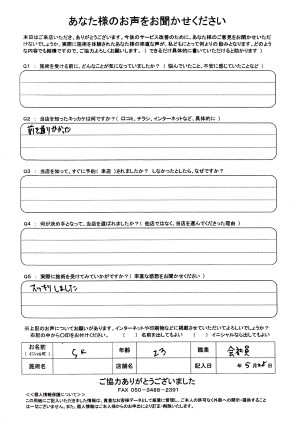 あなた様のお声をお聞かせください
本日はご来店いただき、ありがとうございます。今後のサービス改善のために、あなた様のご意見をお聞かせいただ
けないでしょうか。実際に施術を体験されたあなた様の率直な声が、私どもにとって何よりの励みとなります。どのよう
な内容でも結構ですので、ご協力よろしくお願いします。（できるだけ具体的に書いていただけると助かります）
Q1 ： 施術を受ける前に、どんなことが気になっていましたか？（ 悩んでいたこと、不安に感じていたことなど ）
Q2 ： 当店を知ったキッカケは何ですか？（ 口コミ、チラシ、インターネットなど、具体的に ）
前を通りかかった
Q3 ： 当店を知って、すぐに予約（ 来店 ）されましたか？ しなかったとしたら、なぜですか？
Q4 ： 何が決め手となって、当店を選ばれましたか？（ 他店ではなく、当店を選んでくださった理由 ）
Q5 ： 実際に施術を受けてみていかがですか？（ 率直な感想をお聞かせください ）
スッキリしました
※上記のお声についてお願いがあります。インターネットや印刷物などに掲載させていただいてよろしいでしょうか？
右記の中から〇印をお付けください。 （ ）名前を出してもよい （ ）イニシャルなら出してもよい
お名前 SK 年齢 23 職業 会社員
（イニシャル可）
施術名 店舗名 記入日 年 5月 28日
ご協力ありがとうございました
FAX 050-3488-2391
＜＜個人情報保護について＞＞
この用紙にご記入いただいた情報は、貴重なお客様データとして厳重に管理し、ご本人の許可なく外部への開示・提供すること
は一切ございません。また、個人情報はご本人様からのお申出により訂正・削除いたします。